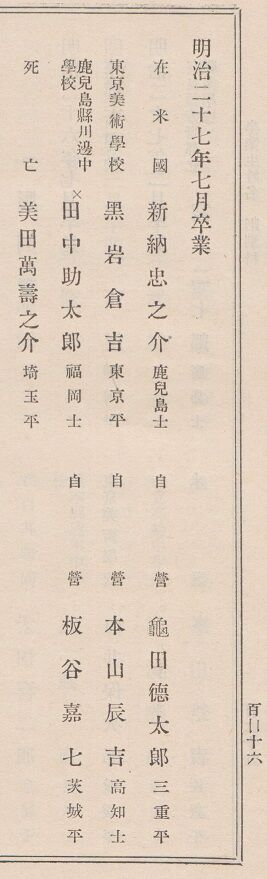 明治二十七年七月卒業
在米國 新納忠之介 鹿兒島士 自營 龜田德太郎 三重平
東京美術學校 黑岩倉吉 東京平 自營 本山辰吉 高知士
鹿兒島縣川邊中學校 ×田中助太郎 福岡士 自營 板谷嘉七 茨城平
死亡 美田萬壽之介 埼玉平
百十六